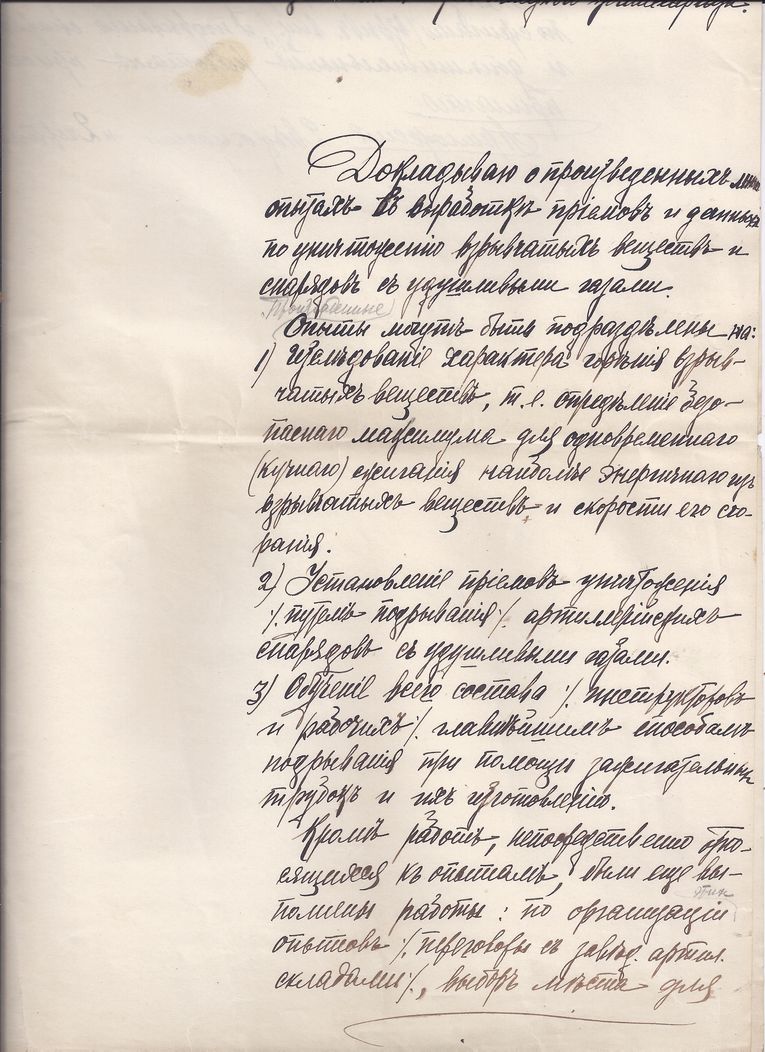 Докладываю о произведенныхъ мною
опытахъ въ выработкѣ пріемовъ и данныхъ
по уничтоженію взрывчатыхъ веществъ и
снарядовъ съ удушливыми газами.
Произведенные
Опыты могутъ быть подраздѣлены на:
1) Изслѣдованіе характера горѣнія взрыв-
чатыхъ веществъ, т.е. опредѣленіе безо-
паснаго максимума для одновременнаго
(кучнаго) сжиганія наиболѣе энергичнаго изъ
взрывчатыхъ веществъ и скорости его сго-
ранія.
2) Установленіе пріемовъ уничтоженія
/. путемъ подрыванія /. артиллерійскихъ
снарядовъ съ удушливыми газами.
3) Обученіе всего состава /. инструкторовъ
и рабочихъ /. главнѣйшимъ способамъ
подрыванія при помощи зажигательныхъ
трубокъ и ихъ изготовленію.
Кромѣ работъ, непосредственно отно-
сящихся къ опытамъ, были еще вы-
полнены работы: по организаціи
опытовъ /. переговоры съ завѣд. артил.
складами /., выборъ мѣста для